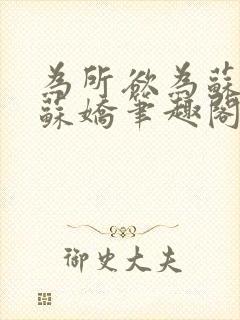 為所欲為蘇
蘇嬌筆趣閣
御史大夫